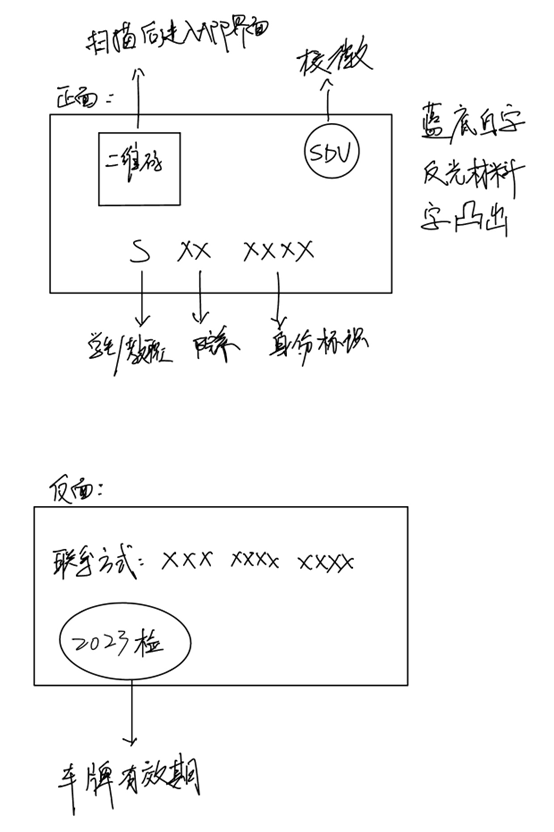 扫描后进入APP界面
校徽
正面：
二维码
SDU
蓝底白字
反光材料
字凸出
S XX XXXX
学生/教职工
院系
身份标识
反面：
联系方式：XXX XXXX XXXX
2023检
车牌有效期